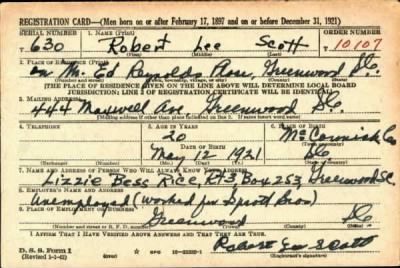 REGISTRATION CARD—(Men born on or after February 17, 1897 and on or before December 31, 1921)
SERIAL NUMBER 1. NAME (Print) ORDER NUMBER
T 630 Robert Lee Scott 10107
(First) (Middle) (Last)
2. PLACE OF RESIDENCE (Print)
on Mr. Ed Reynolds Place, Greenwood SC.
(Number and street) (Town, township, village, or city) (County) (State)
(THE PLACE OF RESIDENCE GIVEN ON THE LINE ABOVE WILL DETERMINE LOCAL BOARD
JURISDICTION; LINE 2 OF REGISTRATION CERTIFICATE WILL BE IDENTICAL)
3. MAILING ADDRESS
444 Maxwell Ave. Greenwood SC.
(Mailing address if other than place indicated on line 2. If same insert word same)
4. TELEPHONE 5. AGE IN YEARS 6. PLACE OF BIRTH
20 McCormick Co
DATE OF BIRTH (Town or county)
May 12 1921 SC
(Exchange) (Number) (Mo.) (Day) (Yr.) (State or country)
7. NAME AND ADDRESS OF PERSON WHO WILL ALWAYS KNOW YOUR ADDRESS
Lizzie Bess Rice, Rt 3, Box 253, Greenwood SC.
8. EMPLOYER'S NAME AND ADDRESS
Unemployed (worked for Sprott Bros)
9. PLACE OF EMPLOYMENT OR BUSINESS
Greenwood SC.
(Number and street or R. F. D. number) (Town) (County) (State)
I AFFIRM THAT I HAVE VERIFIED ABOVE ANSWERS AND THAT THEY ARE TRUE.
D. S. S. Form 1
(Revised 1-1-42) Robert Lee Scott
(Registrant's signature)